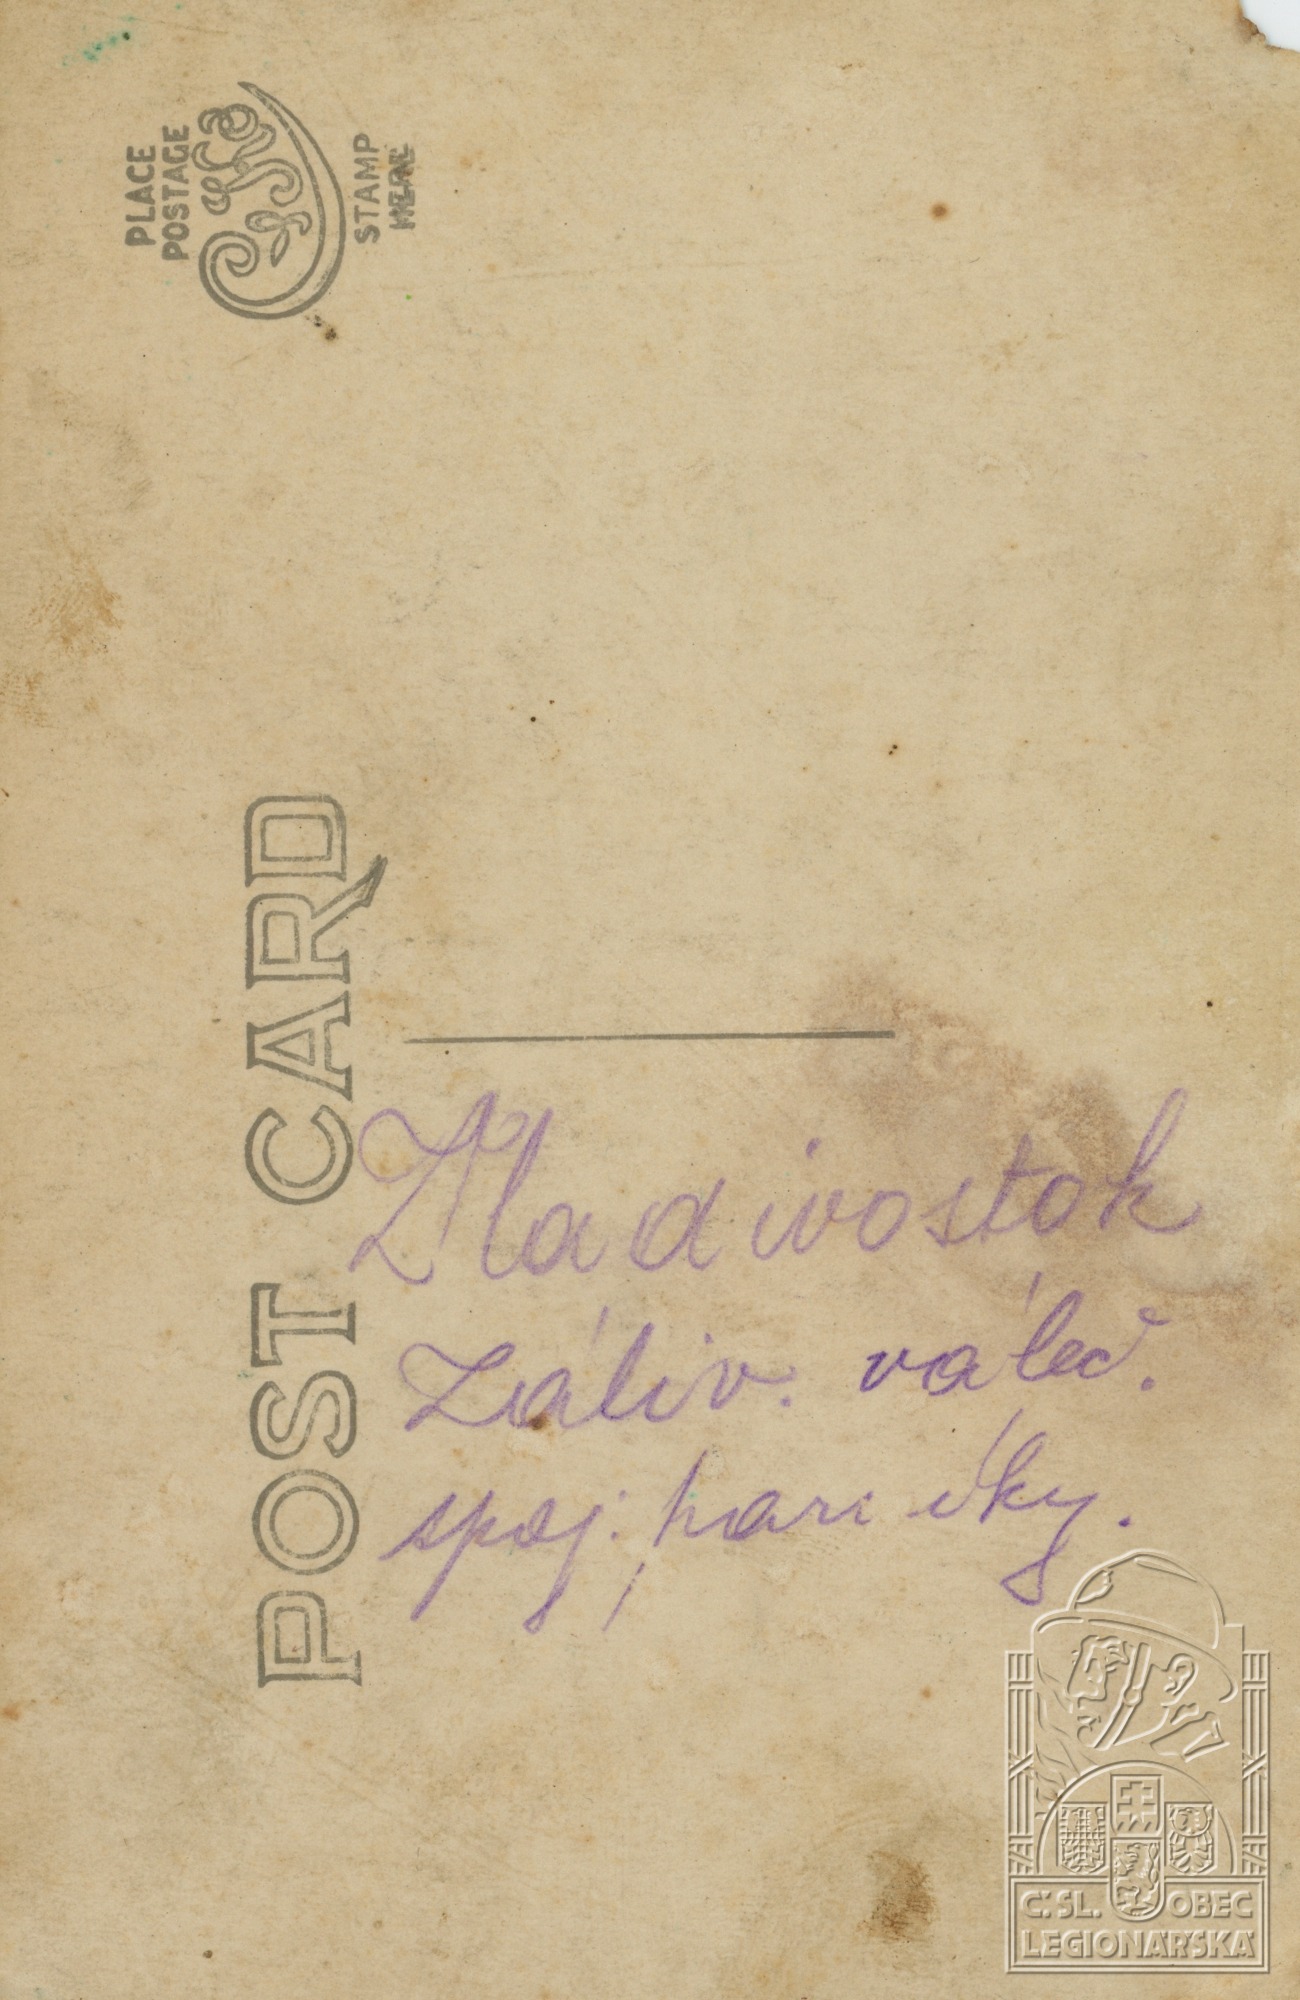 PLACE
POSTAGE
STAMP
HERE
POST CARD
Vladivostok
záliv. váleč.
spoj. parníky.
Č.SL. OBEC
LEGIONÁŘSKÁ